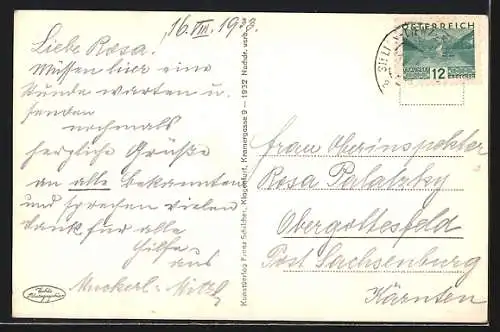 16. VIII. 1933.
Liebe Rosa!
Müssen hier eine
Stunde warten u.
senden
nochmals
herzliche Grüße
an alle Bekannten
und sprechen vielen
Dank für alle
Hilfe
aus
Muckerl - Mitzl
Echte Photographie
Kunstverlag Franz Schilcher, Klagenfurt, Kramergasse 9 — 1932 Nachdr. verb.
ÖSTERREICH
12
Frau Oberinspektor
Rosa Palatzky
Obergottesfeld
Post Sachsenburg
Kärnten